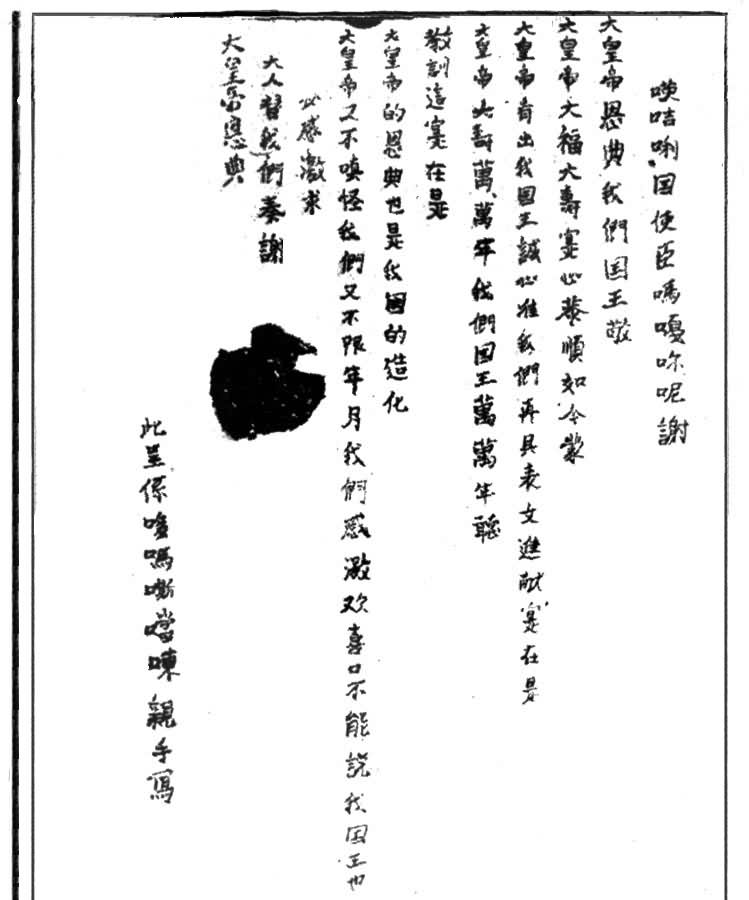 㗲咭唎国使臣嗎嘎呢謝
大皇帝恩典我們国王敬
大皇帝大福大壽寔心恭順如今蒙
大皇帝看出我国王誠心准我們再具表文進献寔在是
大皇帝大壽萬萬年我們国王萬萬年聽
教訓這寔在是
大皇帝的恩典也是我國的造化
大皇帝又不嗔怪我們又不限年月我們感激欢喜口不能說我国王也
必感激求
大人替我們奏謝
大皇帝恩典
此呈係哆嗎嘶噹㖦親手寫